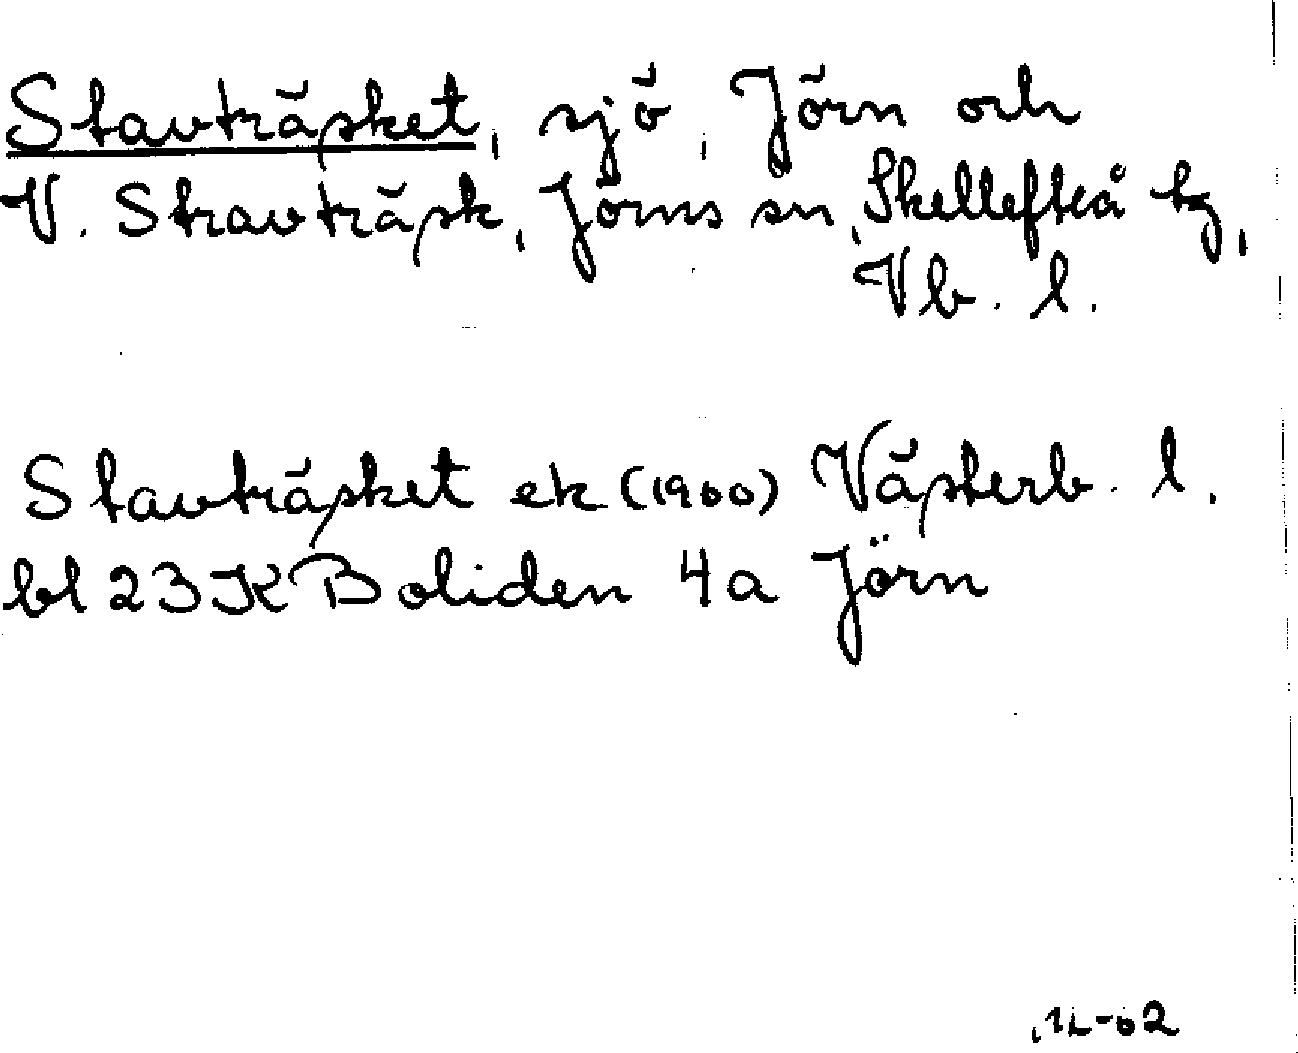 Stavträsket, sjö, Jörn och
V. Stravträsk, Jörns sn, Skellefteå tg,
Vb. l.
Stavträsket ek (1960) Västerb. l.
bl 23 K Boliden 4a Jörn